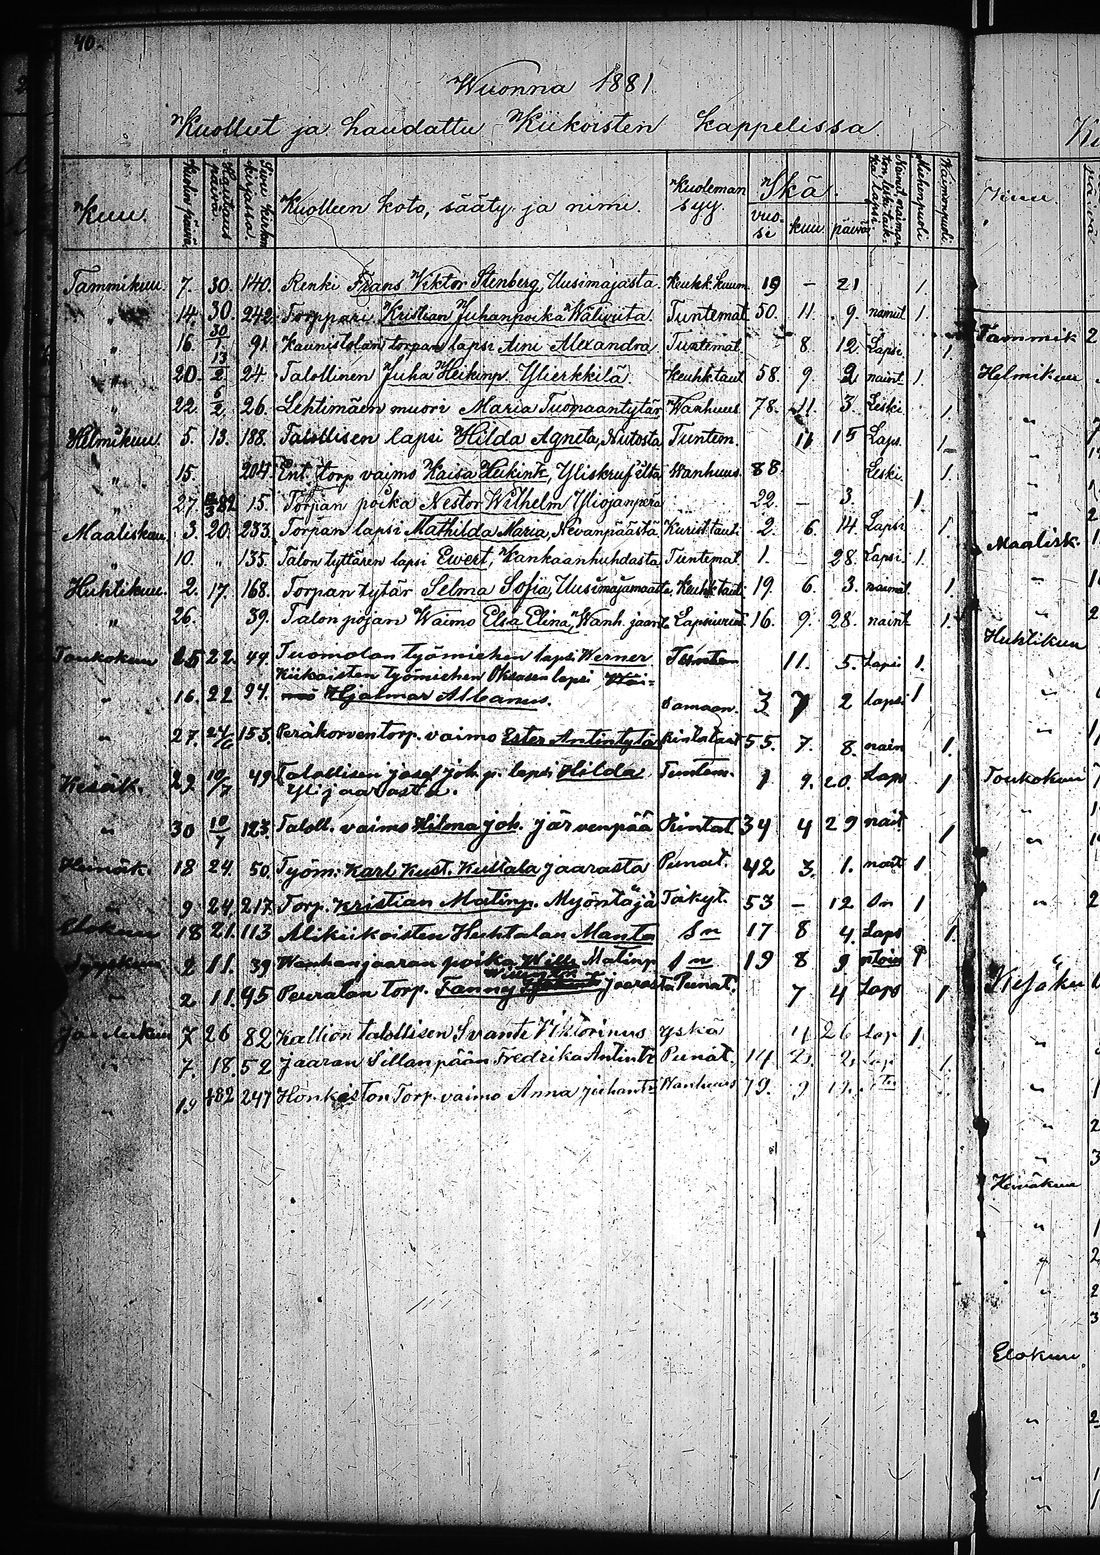 40.
Wuonna 1881.
Kuollut ja haudattu Kiikoisten kappelissa
Kuu.
Kuolin päivä
Hautaus päivä
Sivu kirkon kirjassa.
Kuolleen koto, sääty ja nimi.
Kuoleman syy.
Ikä.
vuosi
kuu
päivä
Miehenpuoli
Waimonpuoli
Tammikuu 7. 30. 140. Renki Frans Viktor Stenberg, Uusimajasta Keuhk.kuum. 19 - 21 1.
" 14. 30 242 Torppari Kristian Juhanpoika Wälivuta Tuntemat 50. 11. 9. nainut 1.
" 16. 30/1 91. Kaunistolan torpan lapsi Aini Alexandra Tuntemat 8. 12. Lapsi. 1.
" 20. 13/2 24. Talollinen Juha Heikinp. Ylierkkilä. Keuhk.taut 58. 9. 2 naint 1.
" 22. 6/2 26. Lehtimäen muori Maria Tuomaantytär Wanhuus 78. 11. 3. Leski. 1.
Helmikuu 5. 13. 188. Talollisen lapsi Hilda Agneta, Autosta Tuntem. 11 15 Laps. 1
" 15. 204. Ent. torp vaimo Kaisa Heikint, Wanhuus 88. Leski. 1.
" 27. 15. Torpan poika Nestor Wilhelm Yliojanperä 22. - 3. 1.
Maaliskuu 3. 20. 233. Torpan lapsi Mathilda Maria, Nevanpäästä Kurist.taut. 2. 6 14 Lapsi 1.
" 10. " 135. Talon tyttären lapsi Ewert, Kankaanhuhdasta Tuntemat. 1. - 28. Lapsi. 1.
Huhtikuu 2. 17. 168. Torpan tytär Selma Sofia, Keuhk.taut. 19. 6 3. naimat 1.
" 26. 39. Talon pojan Waimo Elsa Elina, Wanh. jaara 16. 9. 28. naint 1.
Toukokuu 15 22. 49. Tuomolan työmiehen lapsi Werner Tuntem 11. 5. Lapsi 1.
Kiikoisten työmiehen Oksasen lapsi
" 16. 22 94. Hjalmar Albanus. Samaan. 3 7 2 Lapsi 1
" 27. 24/6 153. Peräkorven torp. vaimo Ester Antintytä Rintataut 55. 7. 8. nain 1.
Kesäk. 29. 10/7 49 Talollisen josef joh. p. lapsi Hilda Tuntem. 1 9. 20. Lap 1
Yli jaarasta.
" 30 10/7 123 Taloll. vaimo Hilma joh. järvenpää Rintat. 34 4 29 nait 1
Heinäk. 18 24. 50. Työm. Karl Kust. Kullala jaarasta Punat. 42 3. 1. nait 1
" 9. 24. 217. Torp. Kristian Matinp. Myöntäjä Täkyt. 53 - 12 Sn 1
Elokuu 18 21. 113 Alikiikoisten Huhtalan Manta Sn 17 8 4. Laps 1.
Syyskuu 2 11. 39 Wanhanjaaran poika Wille Matinp Sn 19 8 9
" 2 11. 95 Peuralan torp. Fanny jaarasta Punat. 7 4 Laps 1
Jouluku 7 26 82 Kallion talollisen Svante Viktorinus yskä 11 26 Lap 1
" 7. 18. 52 jaaran Sillanpään Fredrika Antintr Punat. 14 2. 2. Lap 1.
" 19 1/82 247 Honkiston Torp. vaimo Anna juhantr Wanhuus 79. 9 19.
Kuu
Tammik
Helmikuu
Maalisk.
Huhtikuu
Toukokuu
Kesäku
Heinäkuu
Elokuu